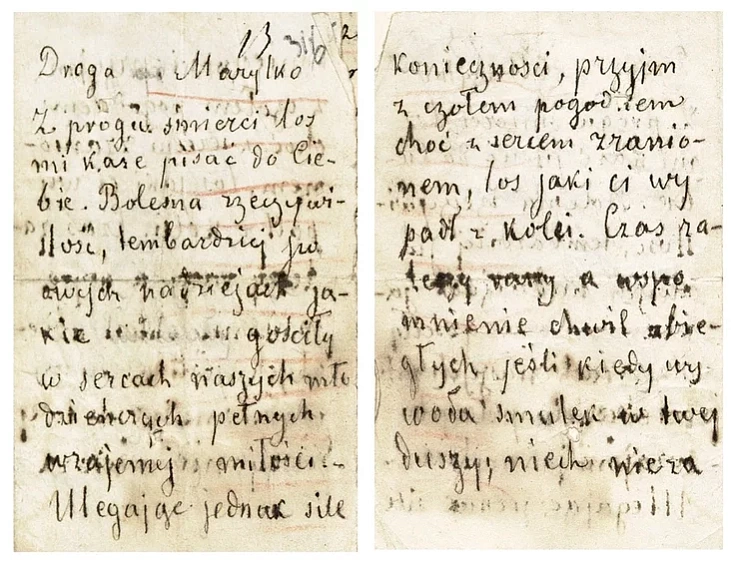 13 316 2
Droga Marylko
Z progu śmierci los
mi każe pisać do Cie-
bie. Bolesna rzeczywi-
stość, tembardziej po
owych nadziejach ja-
kie gościły
w sercach naszych mło
dzieńczych pełnych
wzajemnej miłości.-
Ulegając jednak sile
konieczności, przyjm
z czołem pogodnem
choć z sercem zranio-
nem, los jaki ci wy
padł z kolei. Czas za-
tenży rany a wspo
mnienie chwil ubie-
głych jeśli kiedy wy
woła smutek w twej
duszy, niech nie za